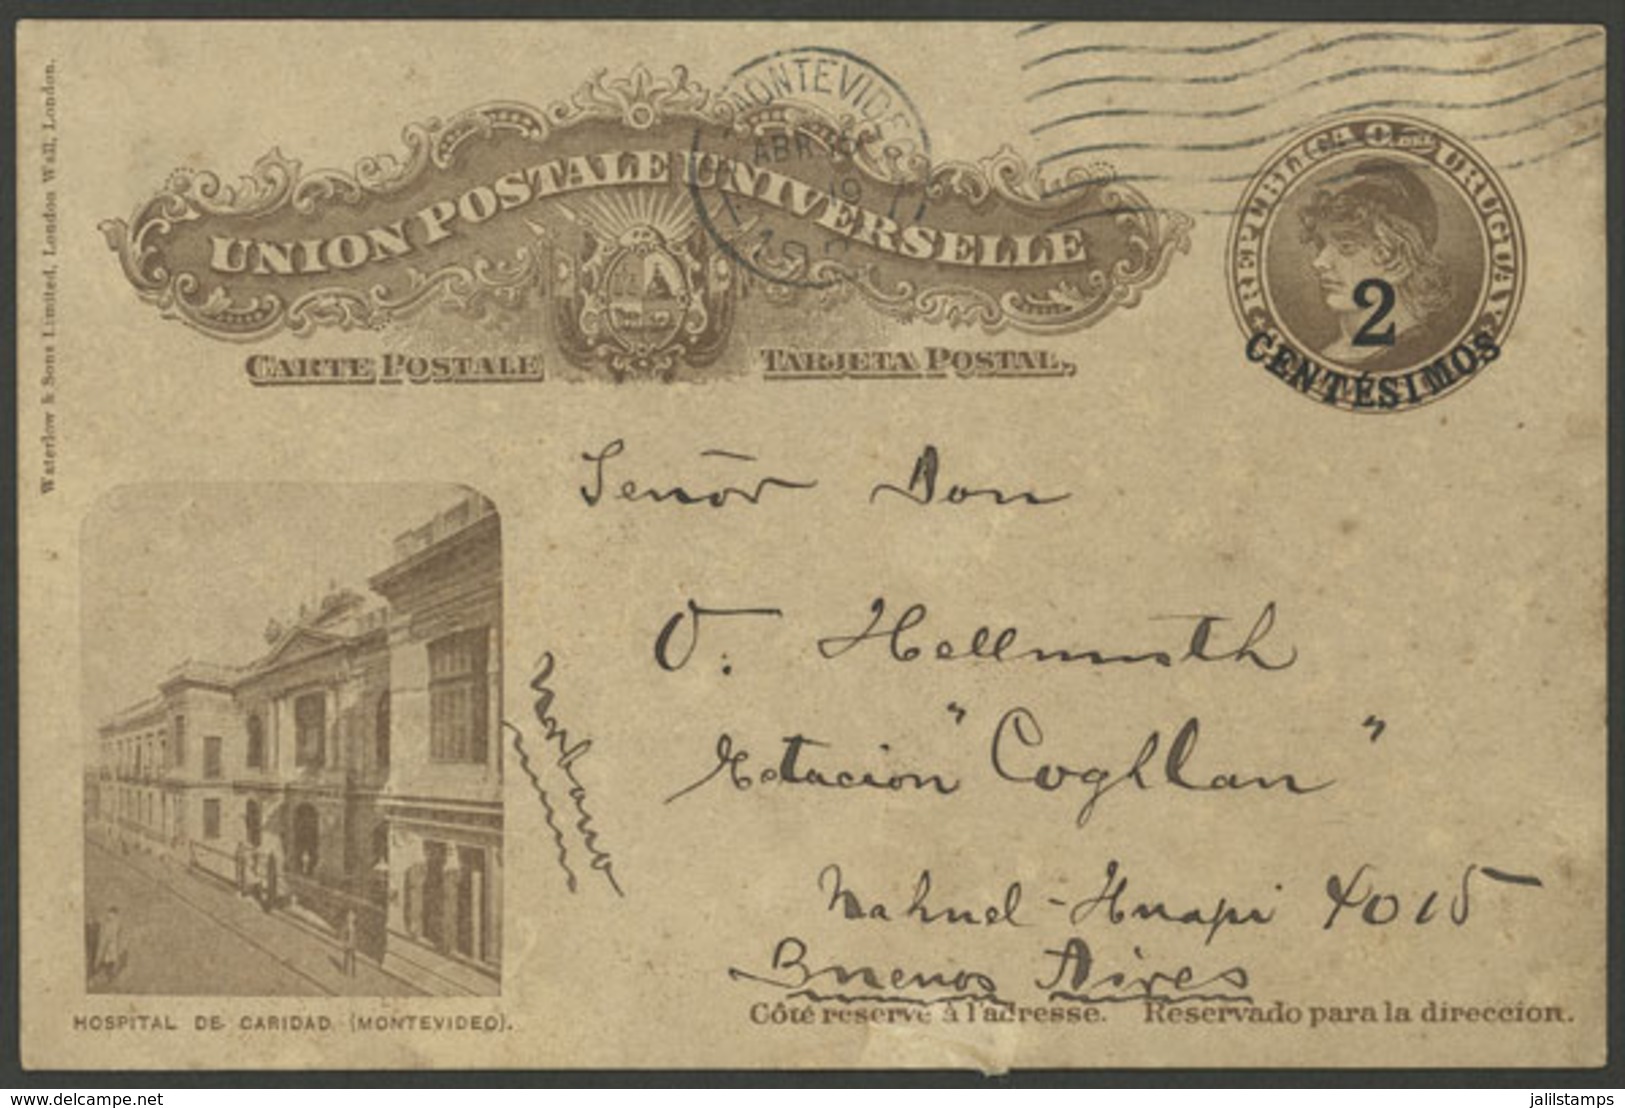 Waterlow & Sons Limited, London Wall, London.
MONTEVIDEO
ABR
19
UNION POSTALE UNIVERSELLE
CARTE POSTALE
TARJETA POSTAL,
REPUBLICA O. DEL URUGUAY
2
CENTÉSIMOS
Señor Don
O. Hellmuth
Estacion "Coghlan"
Nahuel-Huapi 4015
Buenos Aires
HOSPITAL DE CARIDAD (MONTEVIDEO).
Côté reservé à l'adresse. Reservado para la direccion.
delcampe.net
jalilstamps